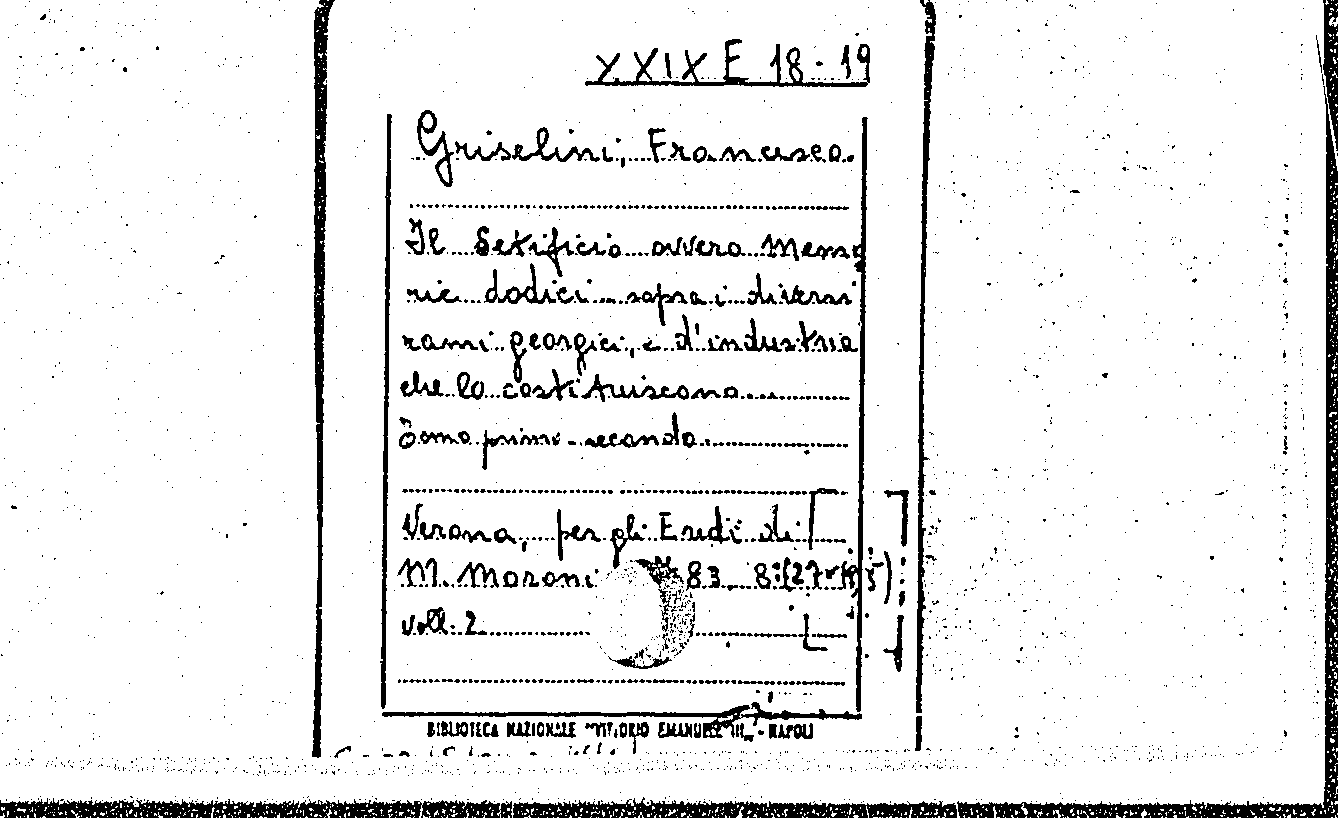 XXIX E 18-19
Griselini, Francesco.
Il Setificio ovvero Memo
rie dodici sopra i diversi
rami georgici, e d'industria
che lo costituiscono
Tomo primo-secondo.
Verona, per gli Eredi di
M. Moroni 83 8:(27×19,5)
voll. 2
BIBLIOTECA NAZIONALE "VITTORIO EMANUELE III„ - NAPOLI